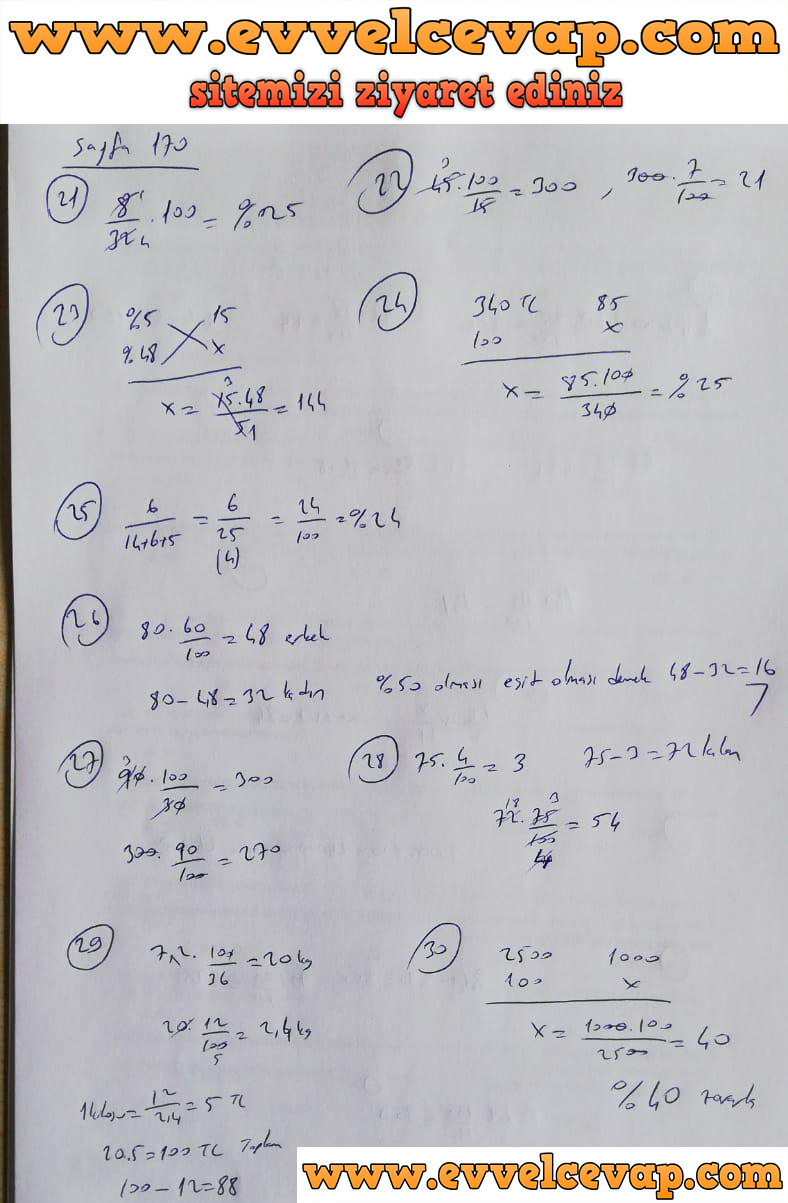 www.evvelcevap.com
sitemizi ziyaret ediniz
Sayfa 170
21) 8/32 . 100 = %25
1
4
22) 45.100/15 = 300 , 300 . 7/100 = 21
3
23) %5 15
%48 x
x = 15.48/5 = 144
3
1
24) 340 TL 85
100 x
x = 85.100/340 = %25
25) 6/14+6+5 = 6/25 = 24/100 = %24
(4)
26) 80 . 60/100 = 48 erkek
80 - 48 = 32 kadın
%50 olması eşit olması demek 48 - 32 = 16
27) 90 . 100/30 = 300
3
300 . 90/100 = 270
28) 75 . 4/100 = 3 75 - 3 = 72 kalan
72 . 75/100 = 54
18 3
4
29) 7,2 . 100/36 = 20 kg
20 . 12/100 = 2,4 kg
5
= 12/2,4 = 5 TL
20.5 = 100 TL Toplam
100 - 12 = 88
30) 2500 1000
100 x
x = 1000.100/2500 = 40
%40
www.evvelcevap.com